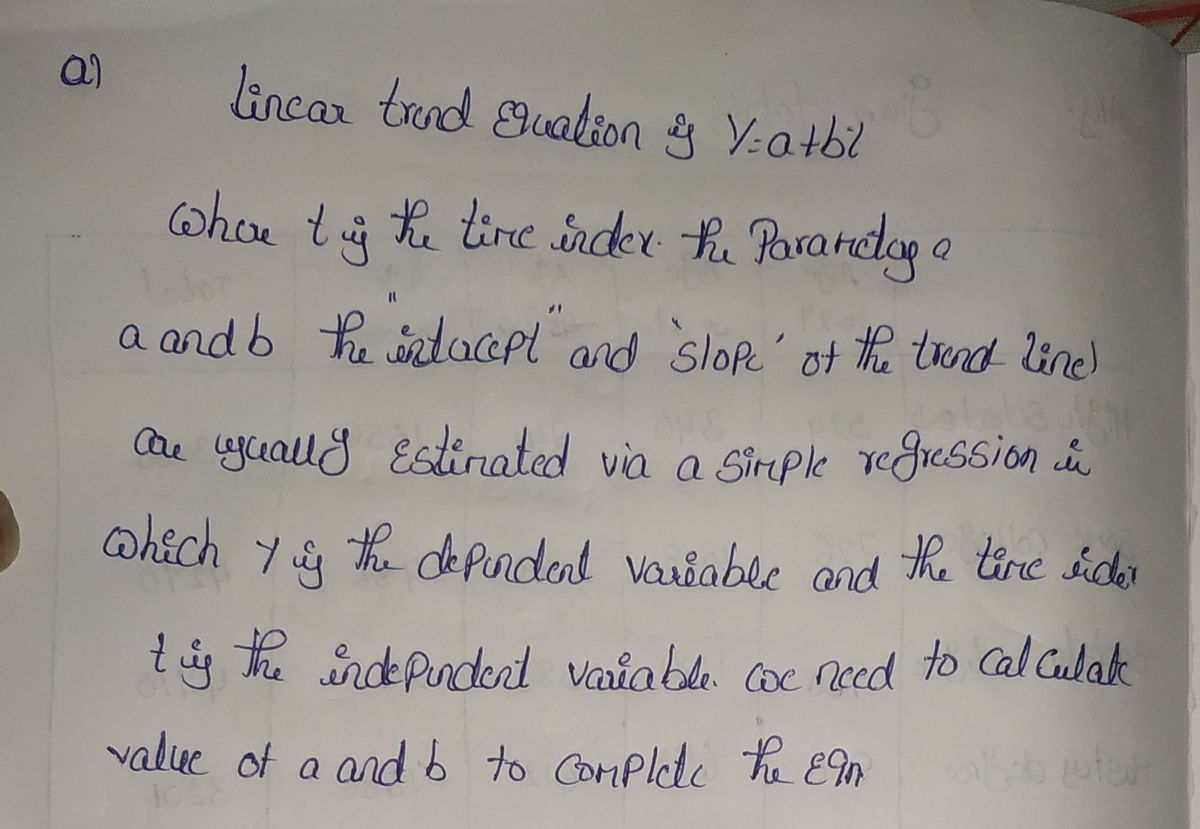 a)
linear trend Equation is Y=a+bt
Where t is the time index. the Parameters a
a and b the "intercept" and 'slope' of the trend line)
are usually Estimated via a simple regression in
which Y is the dependent variable and the time index
t is the independent variable. we need to calculate
value of a and b to complete the Eqn